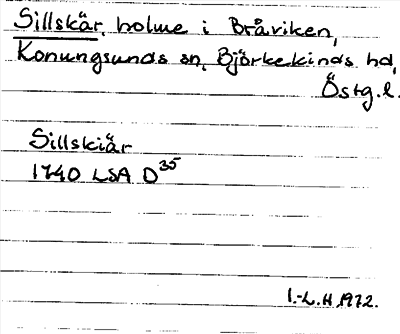 Sillskär, holme i Bråviken,
Konungsunds sn, Björkekinds hd,
Östg.l.
Sillskiär
1740 LSA D35
I.-L.H.1972.